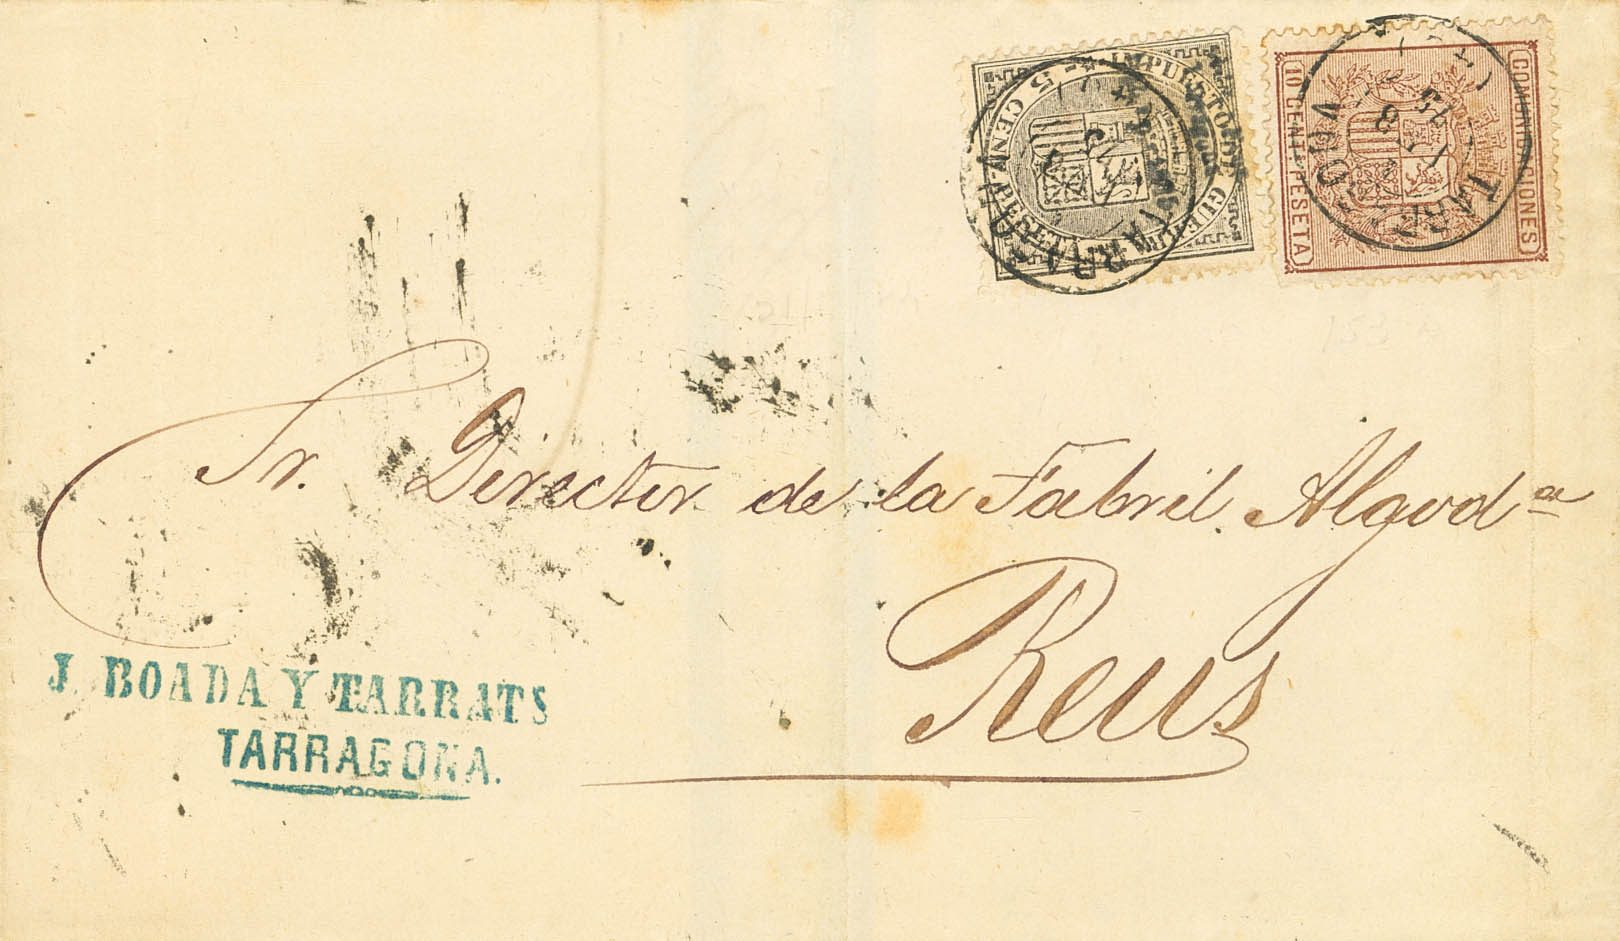 IMPUESTO DE GUERRA
5 CENT
COMUNICACIONES
10 CENT PESETA
TARRAGONA
Sr. Director de la Fabril Algodª
Reus
J. BOADA Y TARRATS
TARRAGONA.